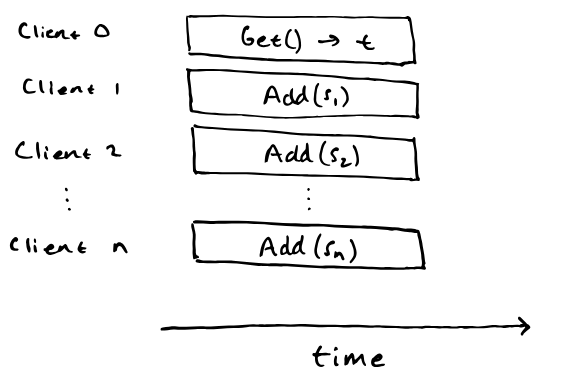 Client 0 Get() → t
Client 1 Add(s₁)
Client 2 Add(s₂)
⋮ ⋮
Client n Add(sₙ)
time